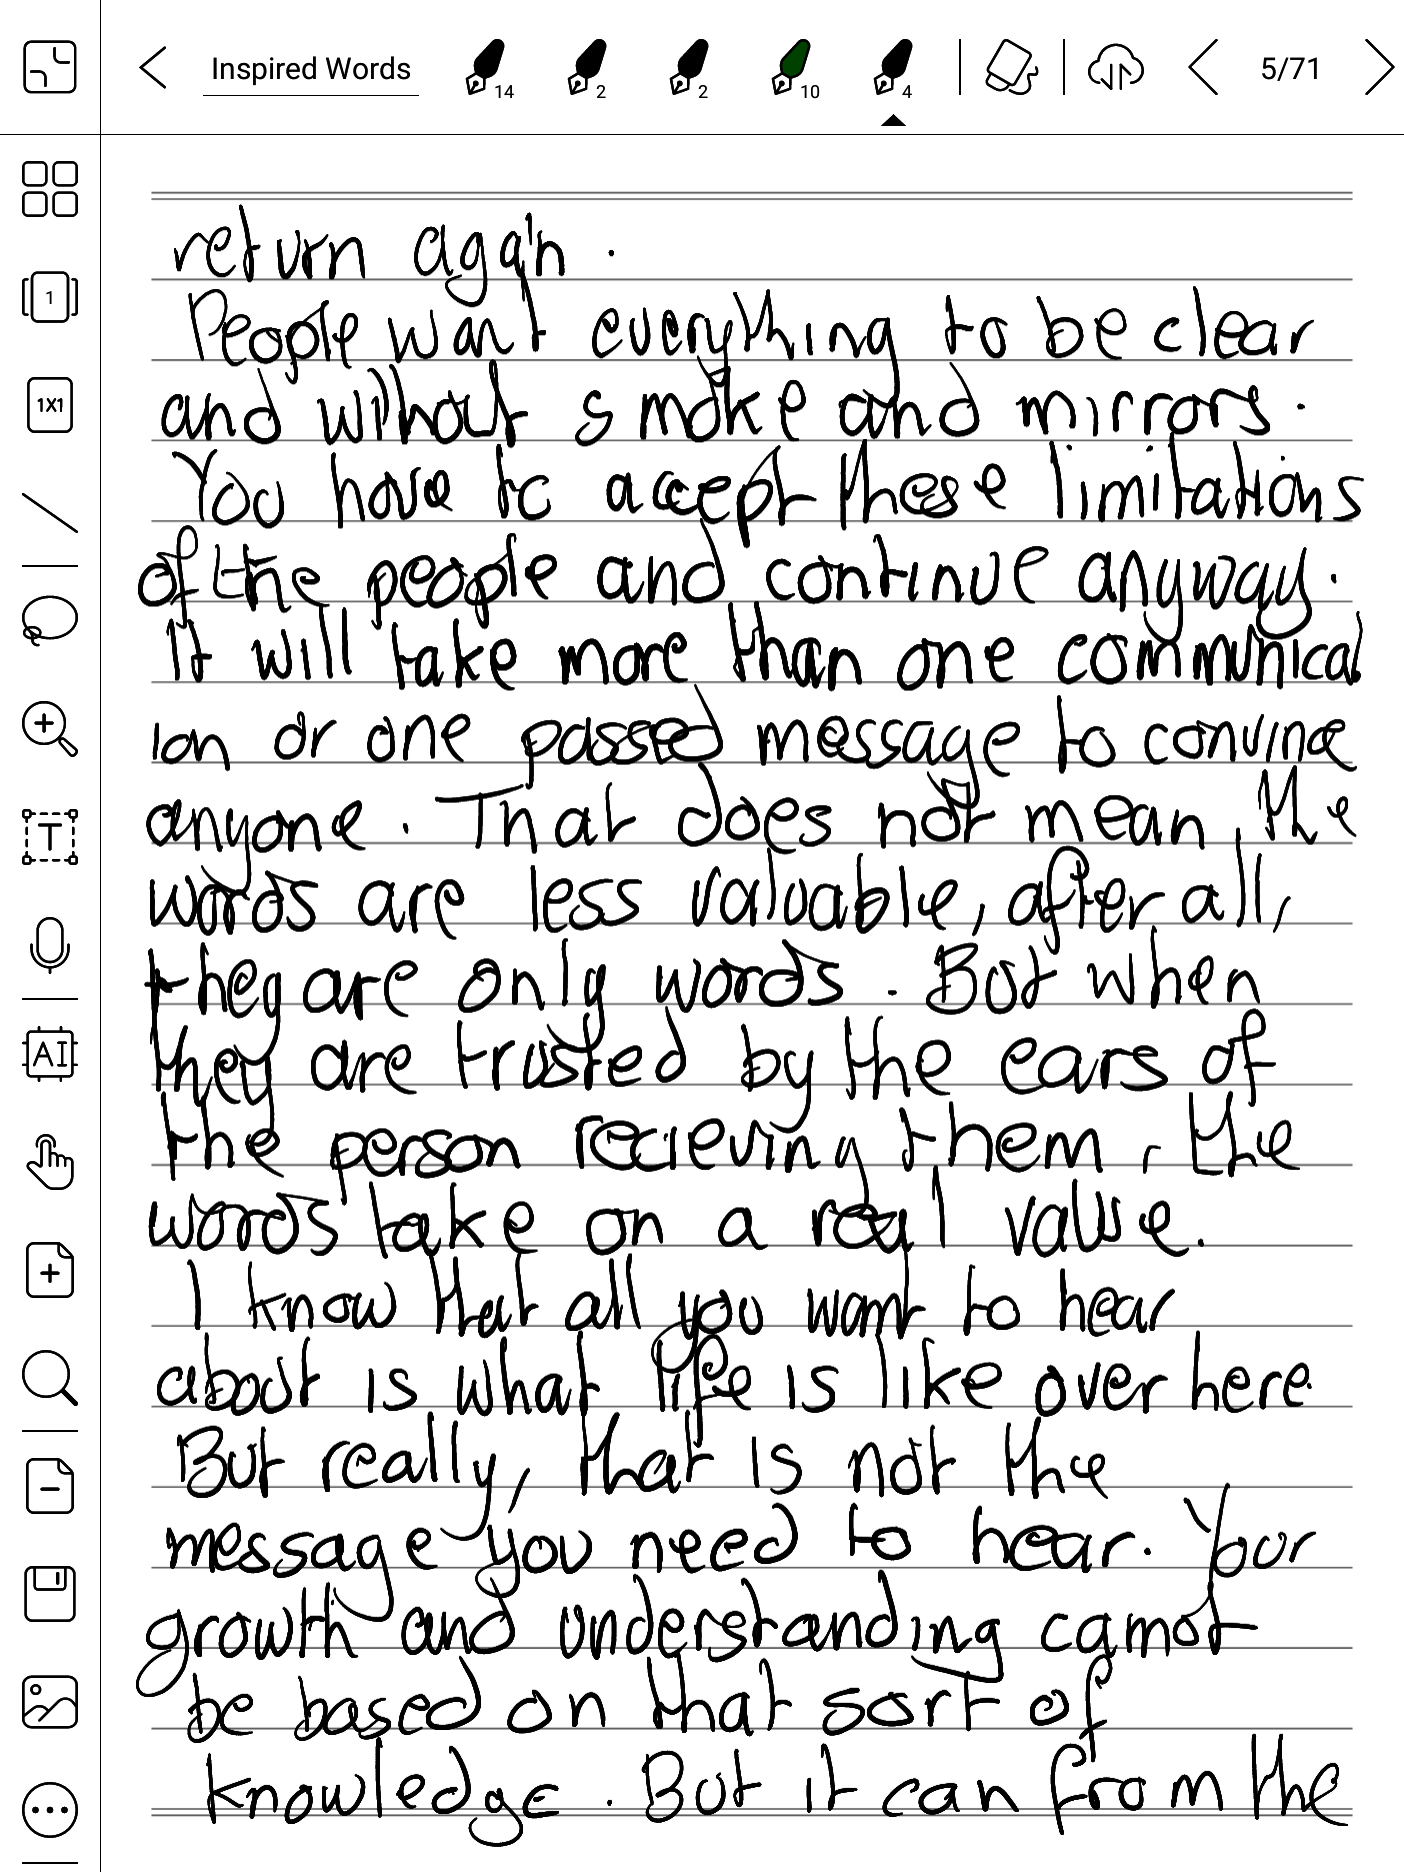 Inspired Words
14
2
2
10
4
5/71
1
1X1
T
AI
return again.
People want everything to be clear
and without smoke and mirrors.
You have to accept these limitations
of the people and continue anyway.
It will take more than one communicat
ion or one passed message to convince
anyone. That does not mean, the
words are less valuable, after all,
they are only words. But when
they are trusted by the ears of
the person recieving them, the
words take on a real value.
I know that all you want to hear
about is what life is like over here.
But really, that is not the
message you need to hear. Your
growth and understanding cannot
be based on that sort of
knowledge. But it can from the